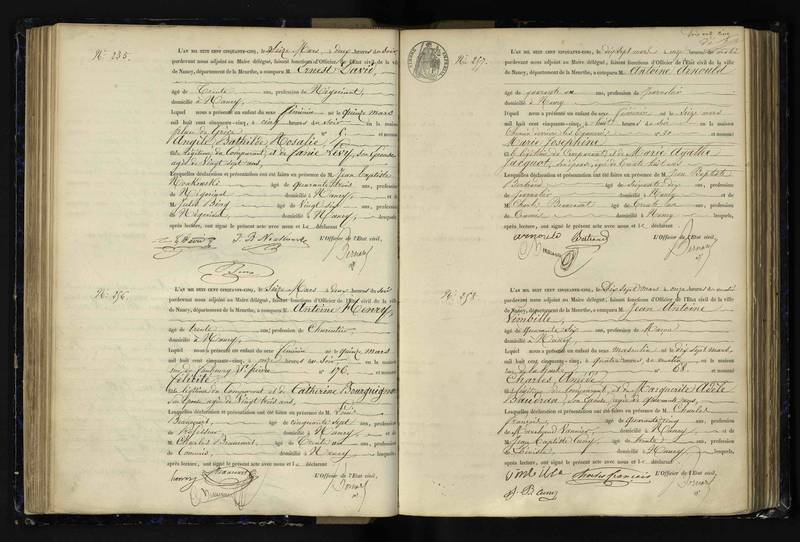 No. 235.
L'AN MIL HUIT CENT CINQUANTE-CINQ, le Seize Mars, à deux heures du soir
pardevant nous adjoint au Maire délégué, faisant fonctions d'Officier de l'Etat civil de la ville
de Nancy, département de la Meurthe, a comparu M. Ernest David,
âgé de Trente ans, profession de Négociant,
domicilié à Nancy,
Lequel nous a présenté un enfant du sexe féminin né le quinze mars
mil huit cent cinquante-cinq, à cinq heures du soir en la maison
place de Grève n° 6. et nommé
Angèle, Bathilde, Rosalie,
fille légitime du Comparant, et de Fanie Lévy, Son Epouse
agée de Vingt sept ans,
Lesquelles déclaration et présentation ont été faites en présence de M. Jean Baptiste
âgé de quarante ans, profession
de Négociant domicilié à Nancy, et de
M. Juda Bing âgé de Vingt six ans, profession
de Négociant, domicilié à Nancy, lesquels,
après lecture, ont signé le présent acte avec nous et le déclarant
L'Officier de l'Etat civil,
No. 256.
L'AN MIL HUIT CENT CINQUANTE-CINQ, le Seize Mars à deux heures du soir
pardevant nous adjoint au Maire délégué, faisant fonctions d'Officier de l'Etat civil de la ville
de Nancy, département de la Meurthe, a comparu M. Antoine Henry,
âgé de trente ans, profession de Charcutier,
domicilié à Nancy,
Lequel nous a présenté un enfant du sexe féminin né le quinze mars
mil huit cent cinquante-cinq, à onze heures du soir en la maison
rue du faubourg St. pierre n° 176, et nommé
félicité,
fille légitime du Comparant et de Catherine Bourguignon
Son Epouse agée de Vingt trois ans,
Lesquelles déclaration et présentation ont été faites en présence de M. Louis
âgé de Cinquante Sept ans, profession
de Professeur domicilié à Nancy, et de
M. Charles Beaumont, âgé de Trente ans, profession
de Commis, domicilié à Nancy lesquels,
après lecture, ont signé le présent acte avec nous et le déclarant
L'Officier de l'Etat civil,
No. 257.
L'AN MIL HUIT CENT CINQUANTE-CINQ, le dix sept mars à onze heures du matin
pardevant nous adjoint au Maire délégué, faisant fonctions d'Officier de l'Etat civil de la ville
de Nancy, département de la Meurthe, a comparu M. Antoine Arnould
âgé de quarante un ans, profession de Journalier
domicilié à Nancy
Lequel nous a présenté un enfant du sexe féminin né le Seize mars
mil huit cent cinquante-cinq, à huit heures du soir en la maison
n° 20 et nommé
Marie Joséphine
fille légitime du Comparant et de Marie Agathe
Jacquot, son épouse, agée de trente huit ans
Lesquelles déclaration et présentation ont été faites en présence de M. Jean Baptiste
Bertrand, âgé de soixante dix ans, profession
de Journalier domicilié à Nancy et de
M. Charles Beaumont âgé de trente un ans, profession
de Commis domicilié à Nancy lesquels,
après lecture, ont signé le présent acte avec nous et le déclarant
L'Officier de l'Etat civil,
arnould Bertrand
No. 258.
L'AN MIL HUIT CENT CINQUANTE-CINQ, le Dix Sept mars à onze heures du matin
pardevant nous adjoint au Maire délégué, faisant fonctions d'Officier de l'Etat civil de la ville
de Nancy, département de la Meurthe, a comparu M. Jean Antoine
âgé de quarante Six ans, profession de Maçon
domicilié à Nancy,
Lequel nous a présenté un enfant du sexe masculin né le Dix Sept mars
mil huit cent cinquante-cinq, à quatre heures du matin en la maison
n° 68 et nommé
Charles Amédé
fils légitime du Comparant, et de Marguerite Adèle
Baudran, Son Epouse, agée de quarante ans,
Lesquelles déclaration et présentation ont été faites en présence de M. Charles
françois, âgé de quarante cinq ans, profession
de Marchand Vannier, domicilié à Nancy et de
M. Jean Baptiste Cuny, âgé de trente ans, profession
domicilié à Nancy lesquels,
après lecture, ont signé le présent acte avec nous et le déclarant
L'Officier de l'Etat civil,
Charles françois